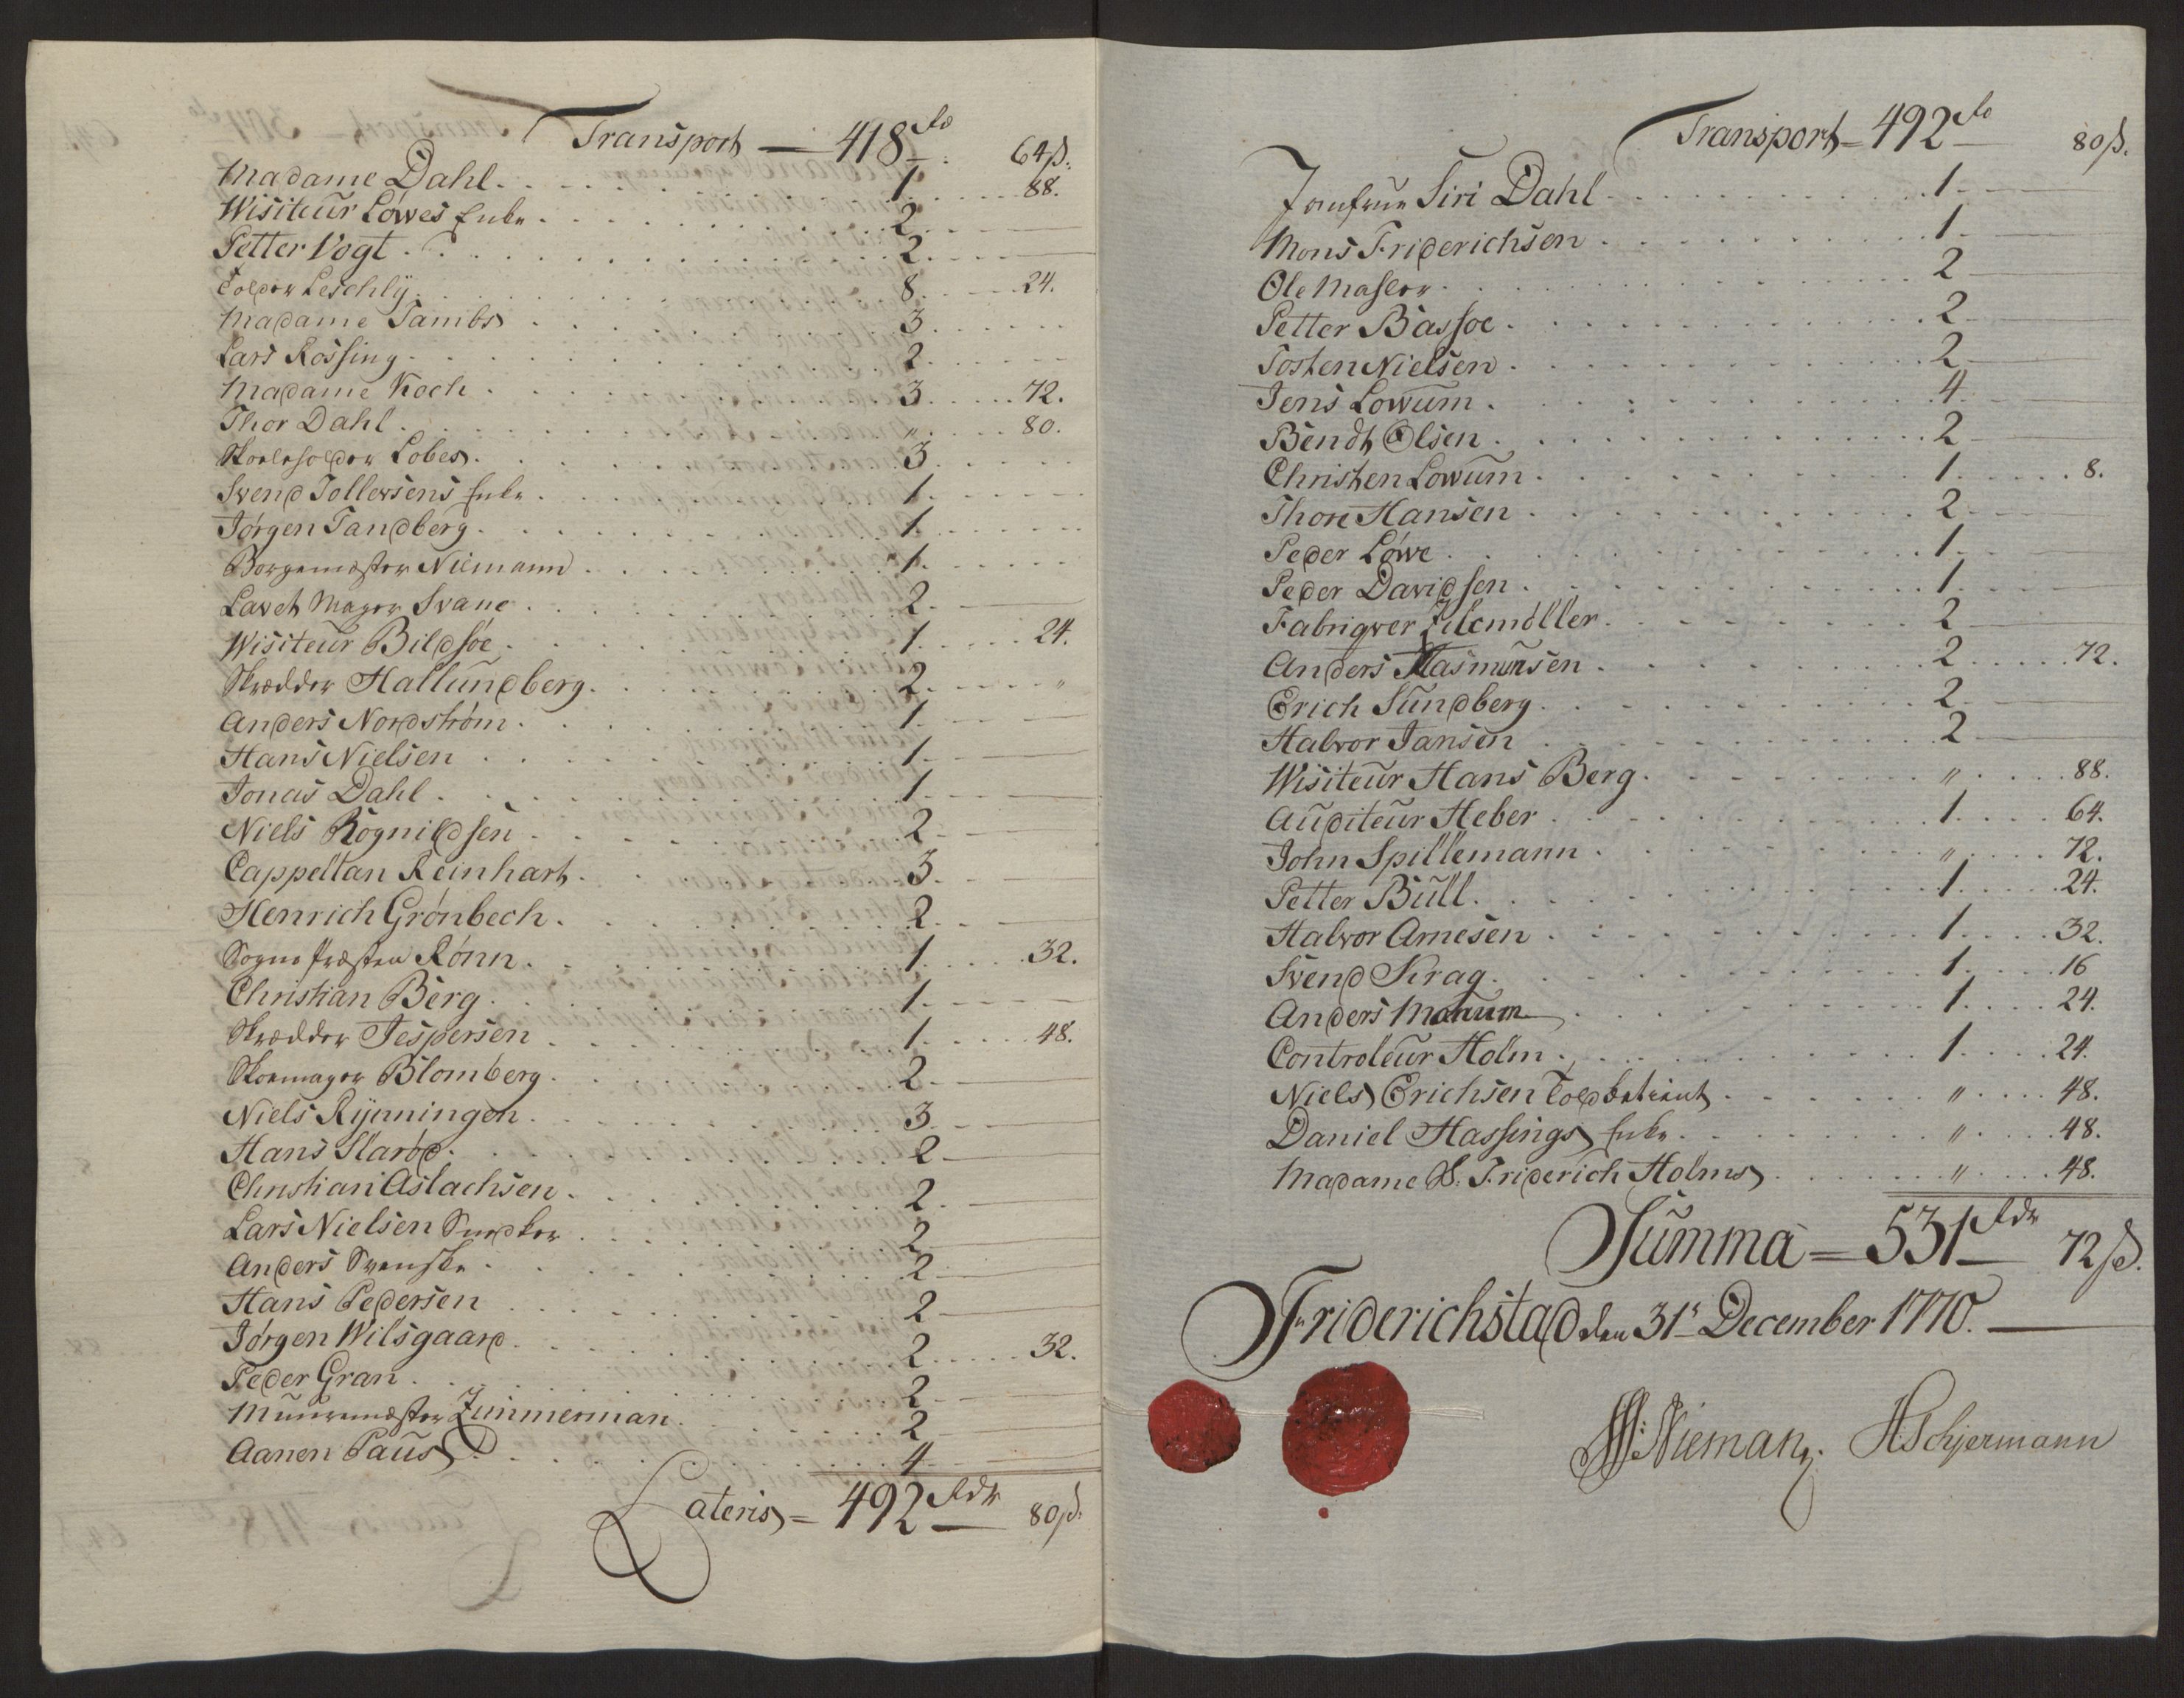 Transport — 418 rd 64 ß.
Madame Dahl . . . 1 . . . 88.
Wisiteur Löwes Enke . . . 2 . . . —
Petter Vogt . . . 2 . . . —
Tolder Leschly . . . 8 . . . 24.
Madame Tambs . . . 3 . . .
Lars Rossing . . . 2 . . .
Madame Koch . . . 3 . . . 72.
Thor Dahl . . . " . . . 80.
Skoleholder Lobes . . . 3 . . .
Svend Tollersens Enke . . . 1 . . .
Jörgen Tandberg . . . 1 . . .
Borgemester Niemann . . . 1 . . .
Lavet Mager Svane . . . 2 . —
Wisiteur Bildsöe . . . 1 . . . 24.
Skrædder Hallundberg . . . 2 . . . "
Anders Nordström . . . 1 . . . —
Hans Nielsen . . . 1 . . . —
Jonas Dahl . . . 1 . . . —
Niels Rognildsen . . . 2 . . . —
Cappellan Reinhart . . . 3 . . . —
Henrich Grönbech . . . 2 . . . —
Sogne Præsten Rönn . . . 1 . . . 32.
Christian Berg . . . 1 . . . —
Skrædder Jespersen . . . 1 . . . 48.
Skoemager Blomberg . . . 2 . —
Niels Rynningen . . . 3 . . —
Hans Slaröd . . . 2 —
Christian Aslachsen . . . 2 . —
Lars Nielsen Snedker . . . 2 —
Anders Svenske . . . 2 —
Hans Pedersen . . . 2 —
Jörgen Wilsgaard . . . 2 . . . 32.
Peder Gran . . . 2 . —
Muuremester Zimmerman . . . 2 . —
Aanen Paus . . . 4 . —
Lateris = 492 Rdr — 80 ß.
Transport = 492 rd — 80 ß.
Jomfrue Siri Dahl . . . 1 . —
Mons Friderichsen . . . 1 . —
Ole Masler . . . 2 —
Petter Bassoe . . . 2 —
Tosten Nielsen . . . 2 —
Jens Lowum . . . 4 . —
Bendt Olsen . . . 2 —
Christen Lowum . . . 1 . . . 8.
Thore Hansen . . . 2 . —
Peder Löwe . . . 1 . —
Peder Davidsen . . . 1 . —
Fabriqver Zilcmöller . . . 2 —
Anders Rasmunsen . . . 2 . . . 72.
Erich Sundberg . . . 2 . —
Halvor Jansen . . . 2 —
Wisiteur Hans Berg . . . " . . . 88.
Auditeur Heber . . . 1 . . . 64.
John Spillemann . . . " . . . 72.
Petter Bull . . . 1 . . . 24.
Halvor Arnesen . . . 1 . . . 32.
Svend Krag . . . 1 . . . 16
Anders Manum . . . 1 . . . 24.
Controleur Holm . . . 1 . . . 24.
Niels Erichsen Toldbetient . . . " . . . 48.
Daniel Hassings Enke . . . " . . . 48.
Madame S. Friderich Holms . . . " . . . 48.
Summa = 531 Rdr — 72 ß.
Friderichstad den 31s December 1770. —
Nieman. H Schjermann